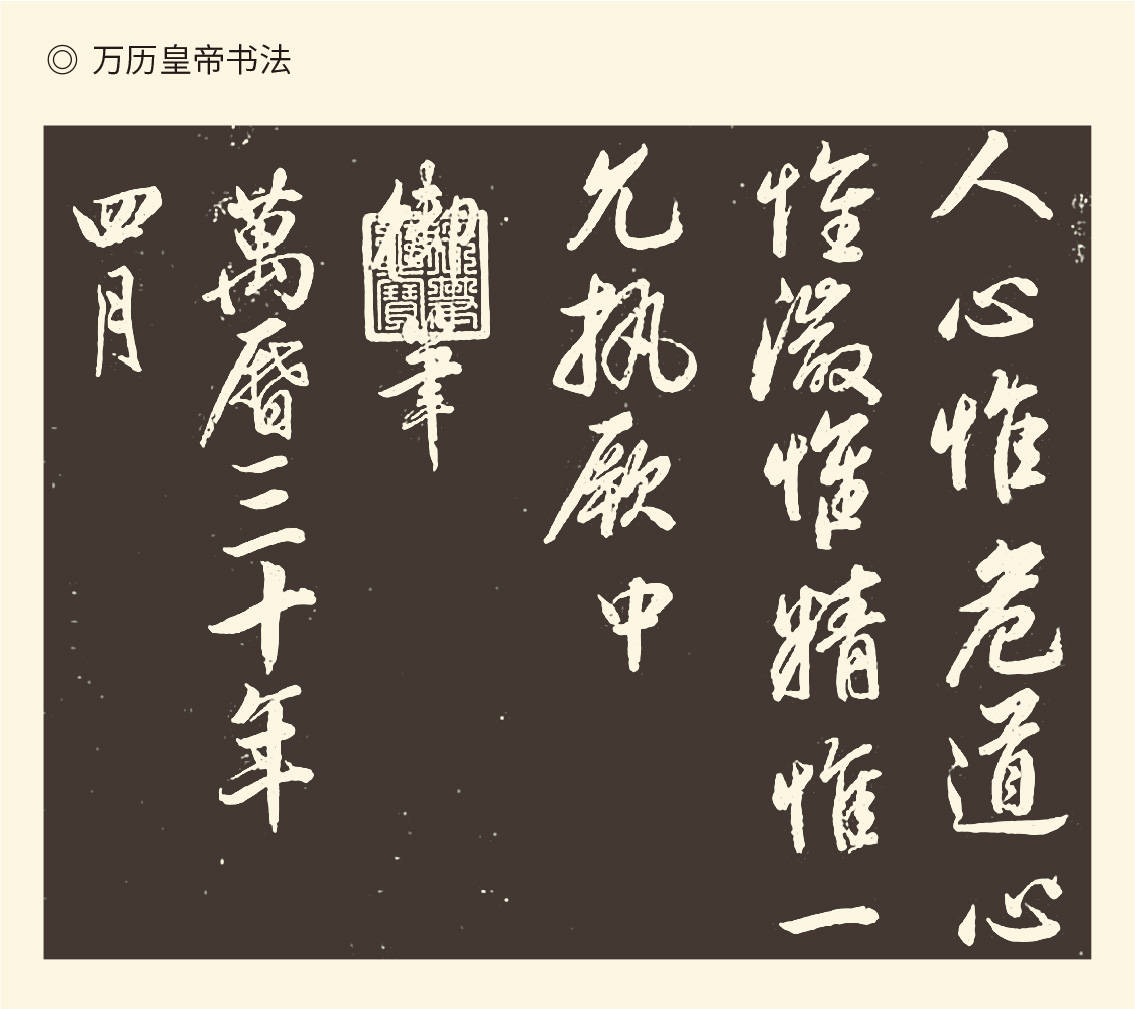 ◎ 万历皇帝书法
人心惟危道心
惟微惟精惟一
允执厥中
御筆
萬曆三十年
四月